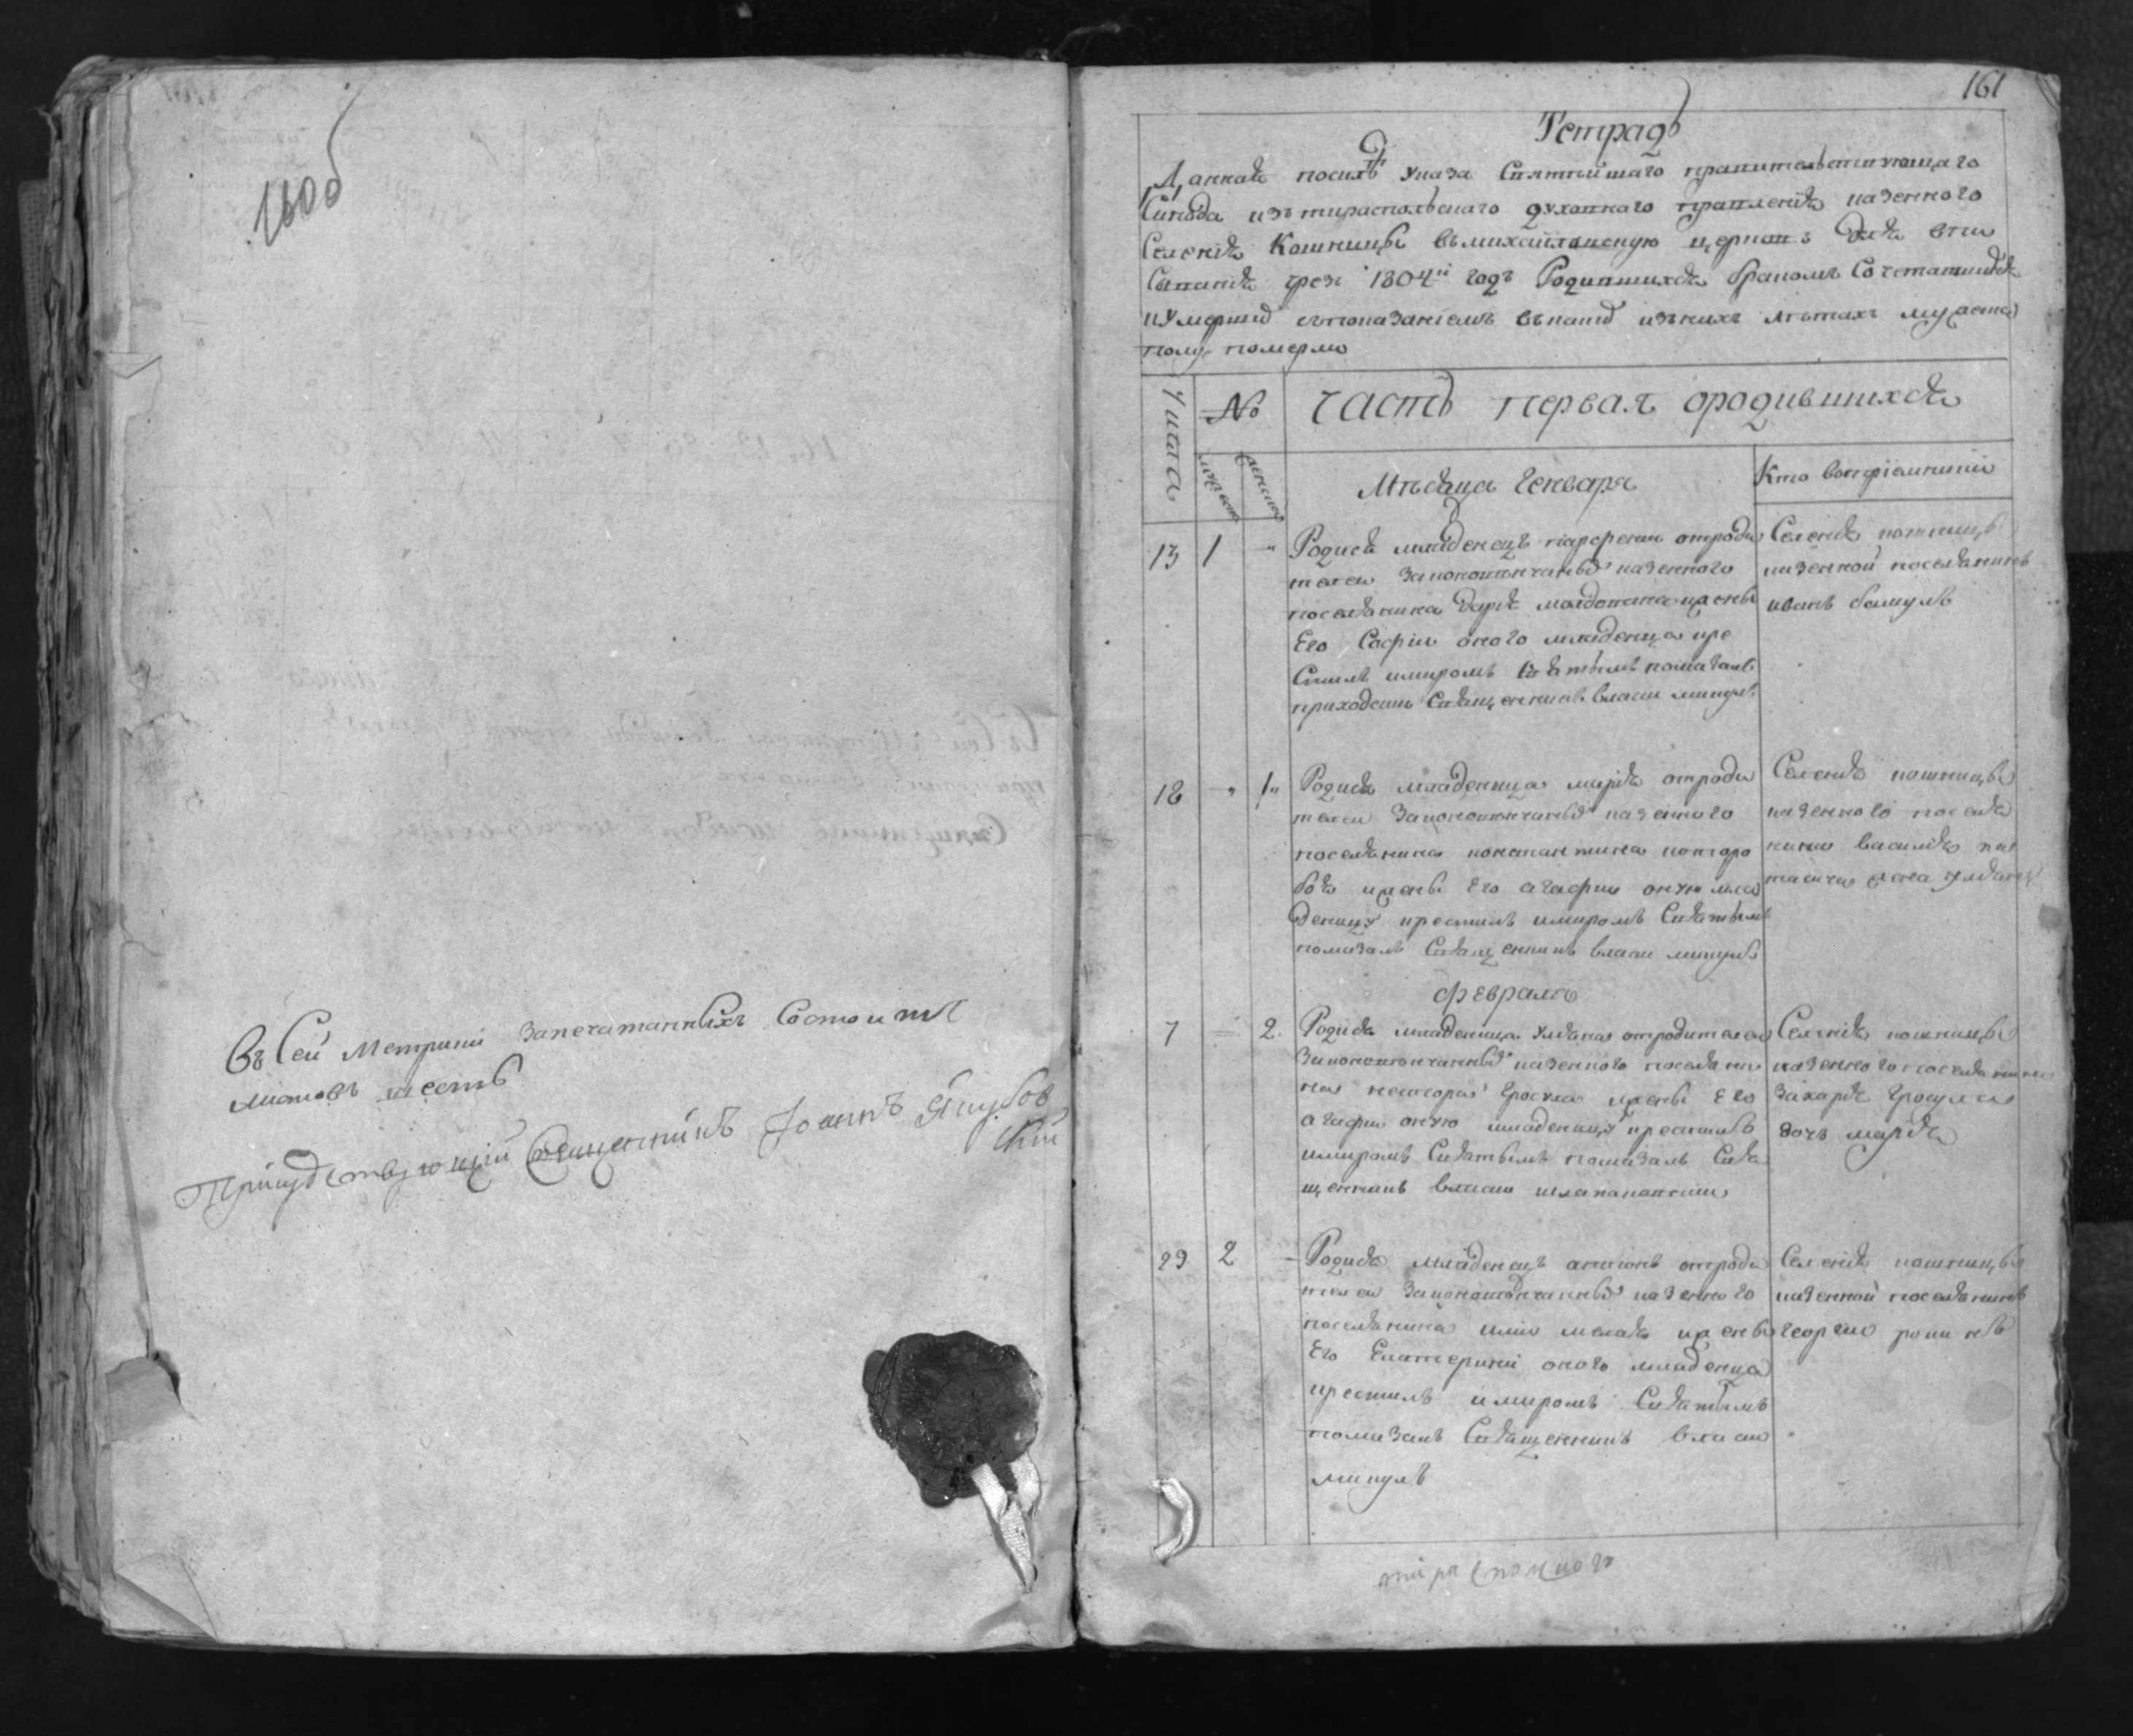 160об
Въ Сей Метрики Запечатанныхъ Состоитъ
листовъ шесть
Присудствующий Священникъ Іоаннъ Якубов
ский
161
Тетрадь
Данная по силѣ указа Святѣйшаго правительствующаго
Синода изъ тираспольскаго духовнаго правленія казенного
Селенія Кошницы въ михайловскую церковь для впи
Сыванія чрезъ 1804й годъ Родившихся бракомъ Сочетавшихся
и Умершихъ съ показаніемъ въ каких изъ них лѣтахъ мужеска
полу померло
Числа
№
часть первая ородившихся
мужеска
женска
Мѣсяца Генваря
Кто восприемники
13 1 "
Родися младенецъ парфений отроди
телей Законовѣнчаных казенного
поселянина Даріи молдована и жены
Его Софіи оного младенца кре
Стилъ имиромъ Святымъ помазалъ
приходский Священникъ власий микулъ
Селенія кошницы
казенной поселянинъ
иванъ
18 " 1"
Родися младеница марія отроди
телей Законовѣнчаных казенного
поселянина константина которо
боя и жены Его агафии оную мла
деницу крестилъ имиромъ Святымъ
помазалъ Священникъ власий микулъ
Селенія кошницы
казенного поселя
нина василія
жена
февраль
7 2
Родися младеница Улияна отродителей
Законовѣнчаных казенного поселяни
на нестора Гросула и жены Его
агафии оную младеницу крестилъ
имиромъ Святымъ помазалъ Свя
щенникъ власий
Селенія кошницы
казенного поселянина
Захарія Гросула
дочь марія
29 2 -
Родися младенецъ антонъ отроди
телей Законовѣнчаных казенного
поселянина и жены
Его Екатерини оного младенца
крестилъ имиромъ Святымъ
помазалъ Священникъ власий
микулъ
Селенія кошницы
казенной поселянинъ
георгий
тираспольского